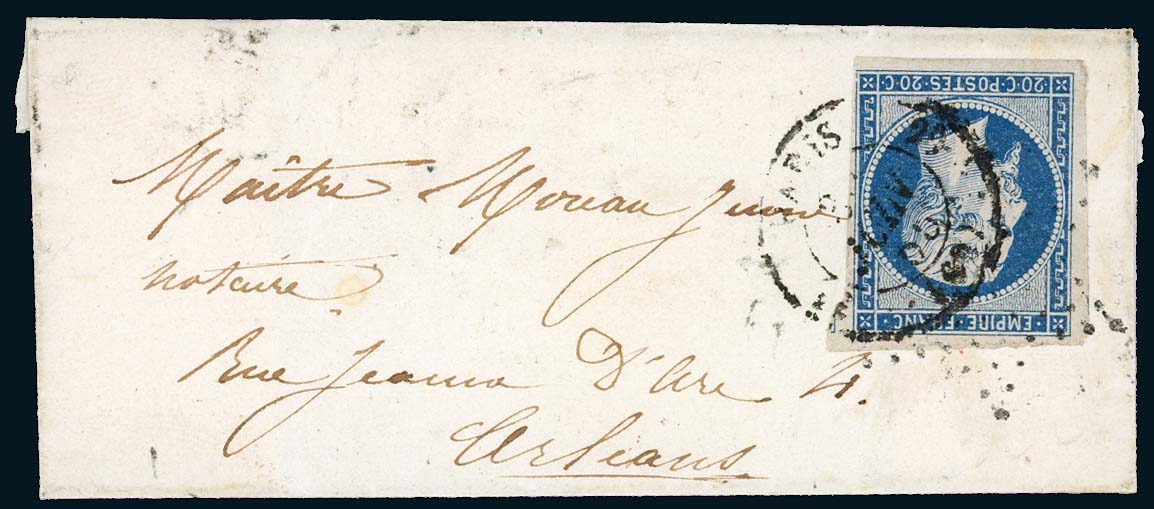 Maître Moreau Jeune
notaire
Rue Jeanne D'Arc 4.
Orléans
20·C·POSTES·20·C
EMPIRE·FRANC
PARIS